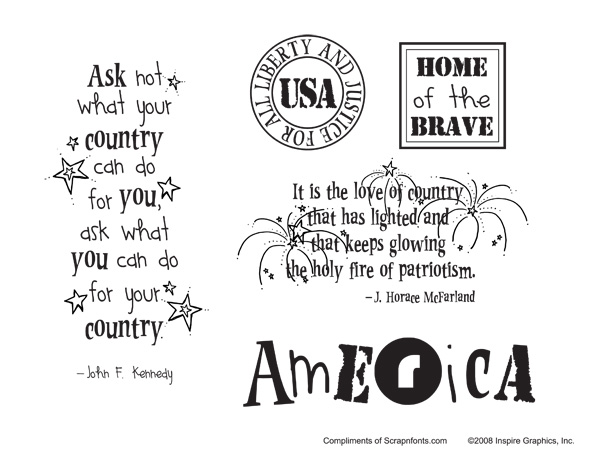 Ask not
what your
country
can do
for you,
ask what
you can do
for your
country.
–John F. Kennedy
LIBERTY AND JUSTICE FOR ALL
USA
HOME
of the
BRAVE
It is the love of country
that has lighted and
that keeps glowing
the holy fire of patriotism.
–J. Horace McFarland
AmEricA
Compliments of Scrapnfonts.com ©2008 Inspire Graphics, Inc.